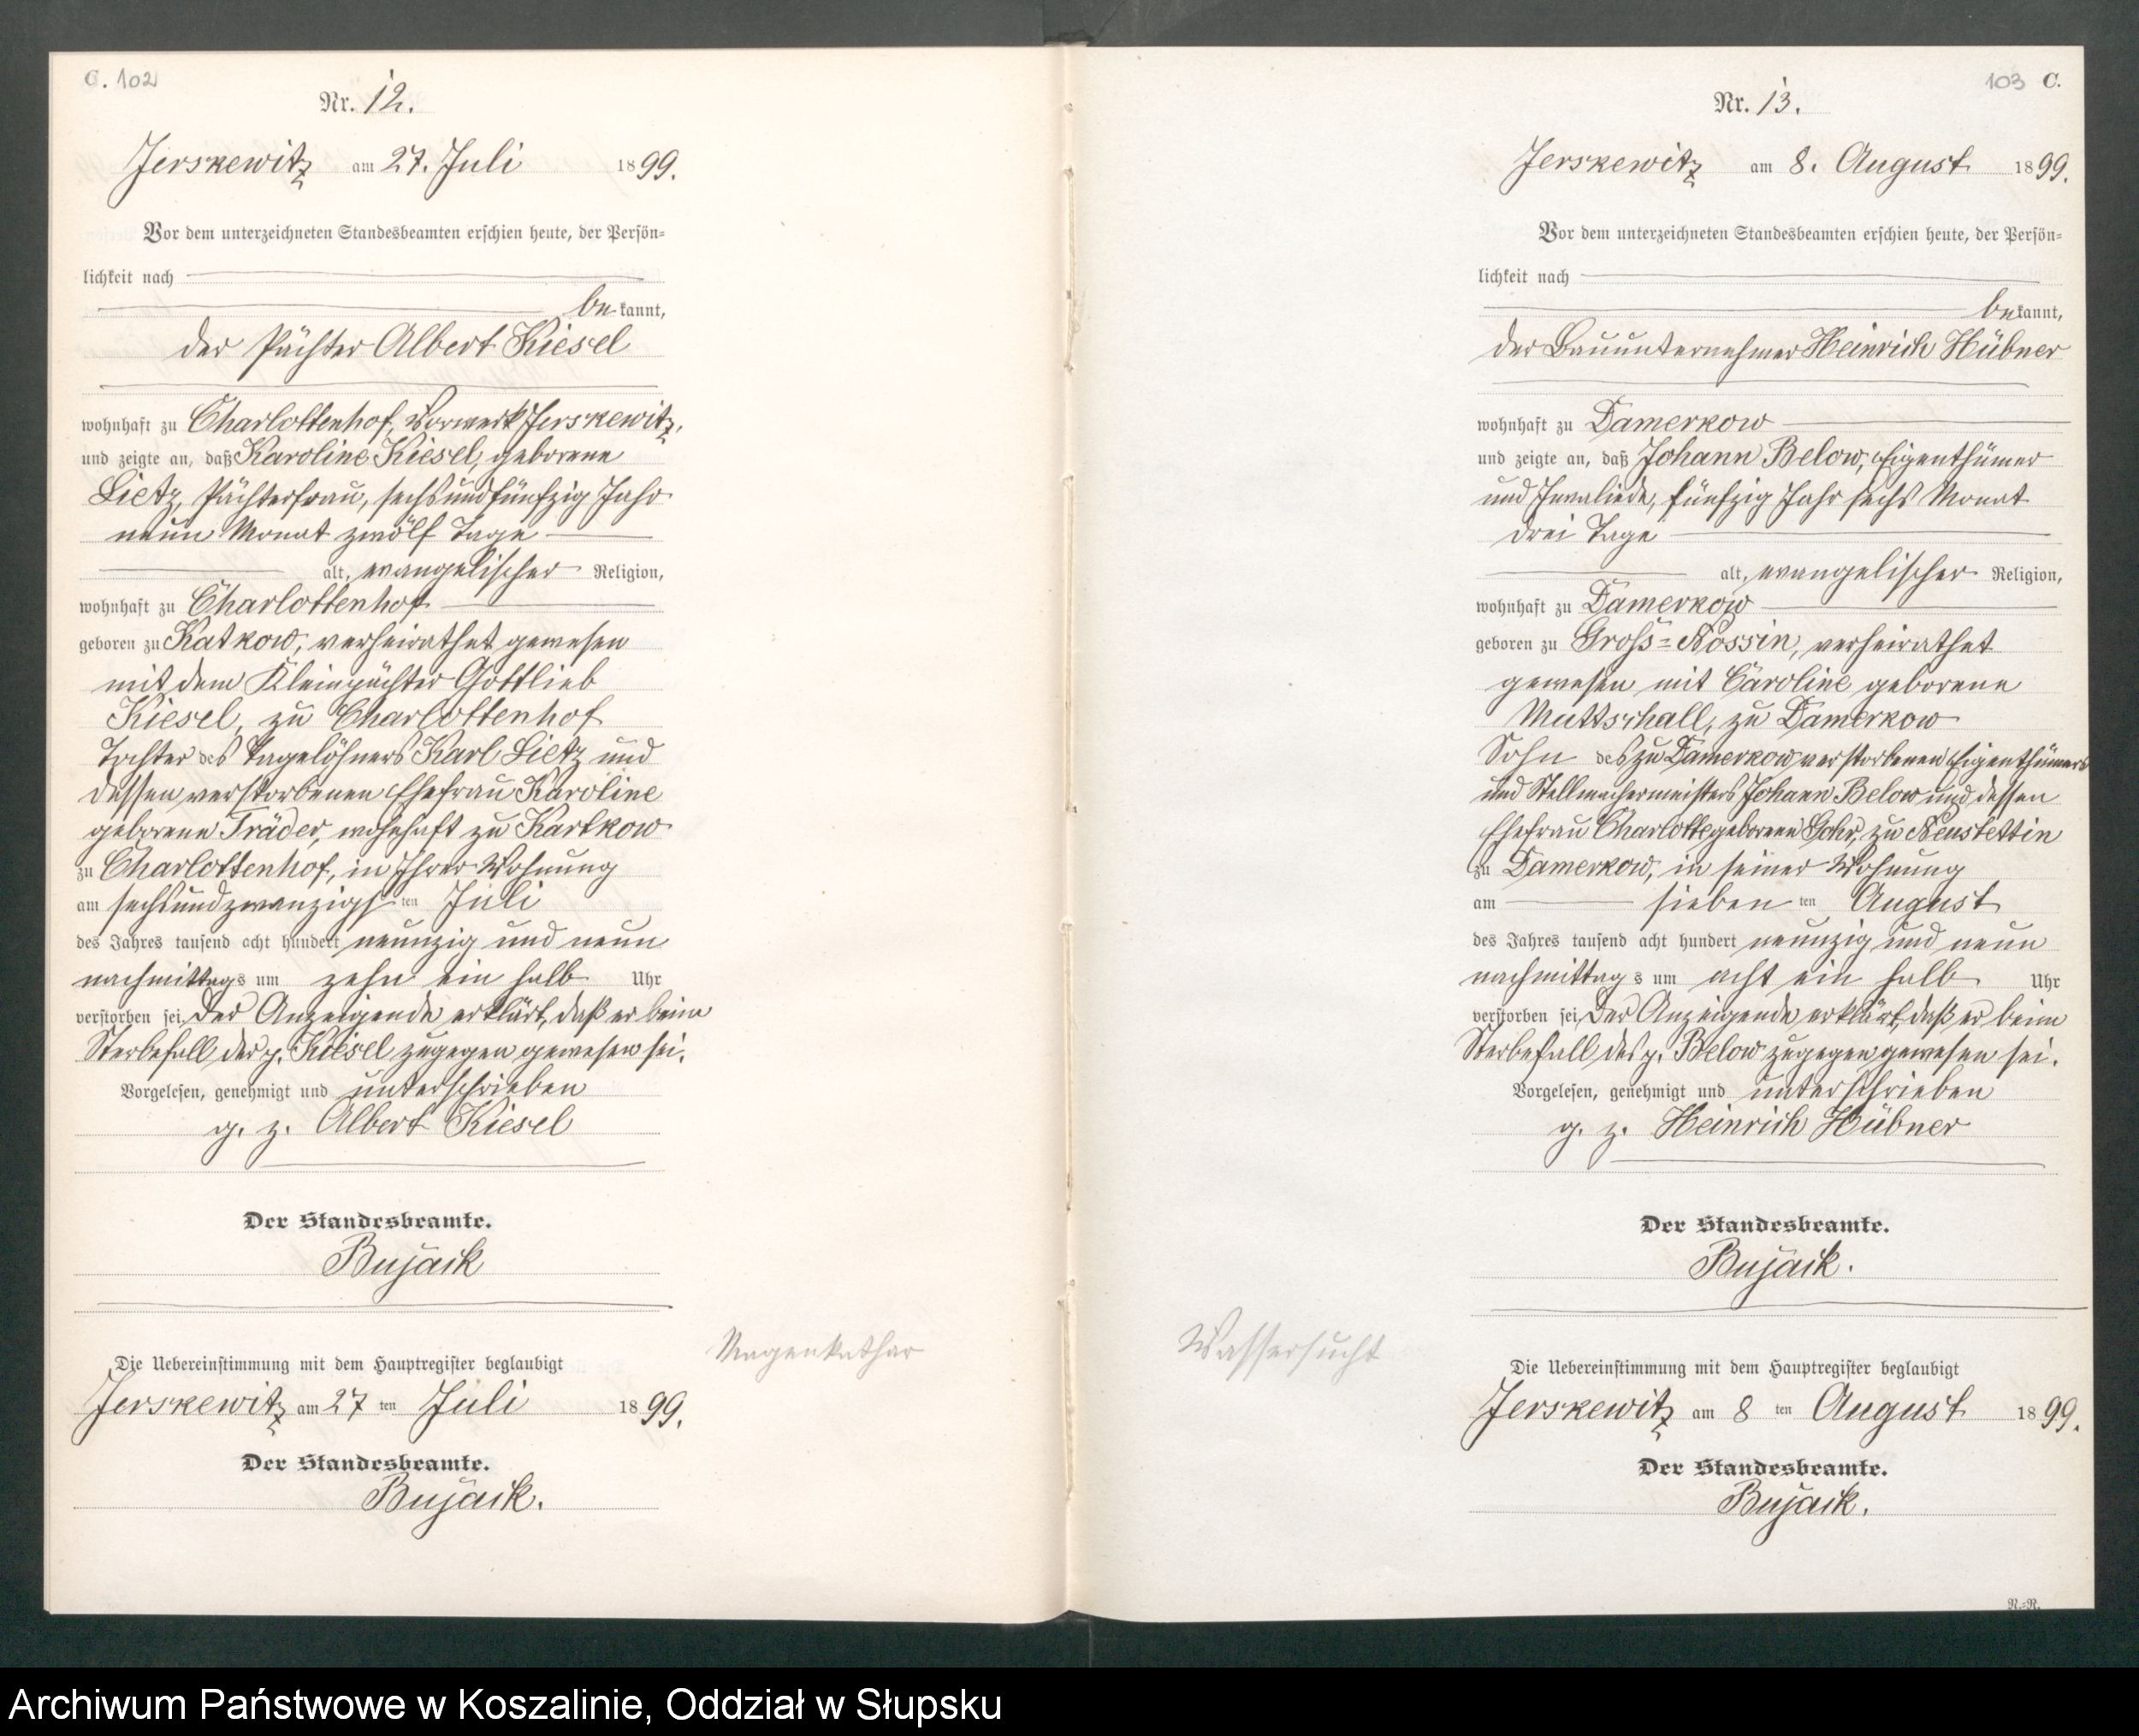 C. 102
Nr. 12.
Jerskewitz am 27. Juli 1899.
Vor dem unterzeichneten Standesbeamten erschien heute, der Persön-
lichkeit nach
bekannt,
der Pächter Albert Kiesel
wohnhaft zu Charlottenhof, Vorwerk Jerskewitz,
und zeigte an, daß Karoline Kiesel, geborene
Lietz, Pächterfrau, sechsundfünfzig Jahr
neun Monat zwölf Tage
alt, evangelischer Religion,
wohnhaft zu Charlottenhof
geboren zu Katkow, verheirathet gewesen
mit dem Kleinpächter Gottlieb
Kiesel, zu Charlottenhof
Tochter des Tagelöhners Karl Lietz und
dessen verstorbenen Ehefrau Karoline
geborene Träder, wohnhaft zu Kartkow
zu Charlottenhof, in Ihrer Wohnung
am sechsundzwanzigsten Juli
des Jahres tausend acht hundert neunzig und neun
nachmittags um zehn ein halb Uhr
verstorben sei. Der Anzeigende erklärt, daß er beim
Sterbefall der p. Kiesel zugegen gewesen sei.
Vorgelesen, genehmigt und unterschrieben
g. z. Albert Kiesel
Der Standesbeamte.
Bujack
Die Uebereinstimmung mit dem Hauptregister beglaubigt
Jerskewitz am 27 ten Juli 1899.
Der Standesbeamte.
Bujack.
Magenkathar
103 C.
Nr. 13.
Jerskewitz am 8. August 1899.
Vor dem unterzeichneten Standesbeamten erschien heute, der Persön-
lichkeit nach
bekannt,
der Bauunternehmer Heinrich Hübner
wohnhaft zu Damerkow
und zeigte an, daß Johann Below, Eigenthümer
und Invaliede, fünfzig Jahr sechs Monat
drei Tage
alt, evangelischer Religion,
wohnhaft zu Damerkow
geboren zu Groß-Nossin, verheirathet
gewesen mit Caroline geborene
Muttschall, zu Damerkow
Sohn des zu Damerkow verstorbenen Eigenthümers
und Stellmachermeisters Johann Below und dessen
Ehefrau Charlotte geborene Gohr, zu Neustettin
zu Damerkow, in seiner Wohnung
am sieben ten August
des Jahres tausend acht hundert neunzig und neun
nachmittags um acht ein halb Uhr
verstorben sei. Der Anzeigende erklärt, daß er beim
Sterbefall des p. Below zugegen gewesen sei.
Vorgelesen, genehmigt und unterschrieben
g. z. Heinrich Hübner
Der Standesbeamte.
Bujack.
Wassersucht
Die Uebereinstimmung mit dem Hauptregister beglaubigt
Jerskewitz am 8 ten August 1899.
Der Standesbeamte.
Bujack.
N.-N.
Archiwum Państwowe w Koszalinie, Oddział w Słupsku